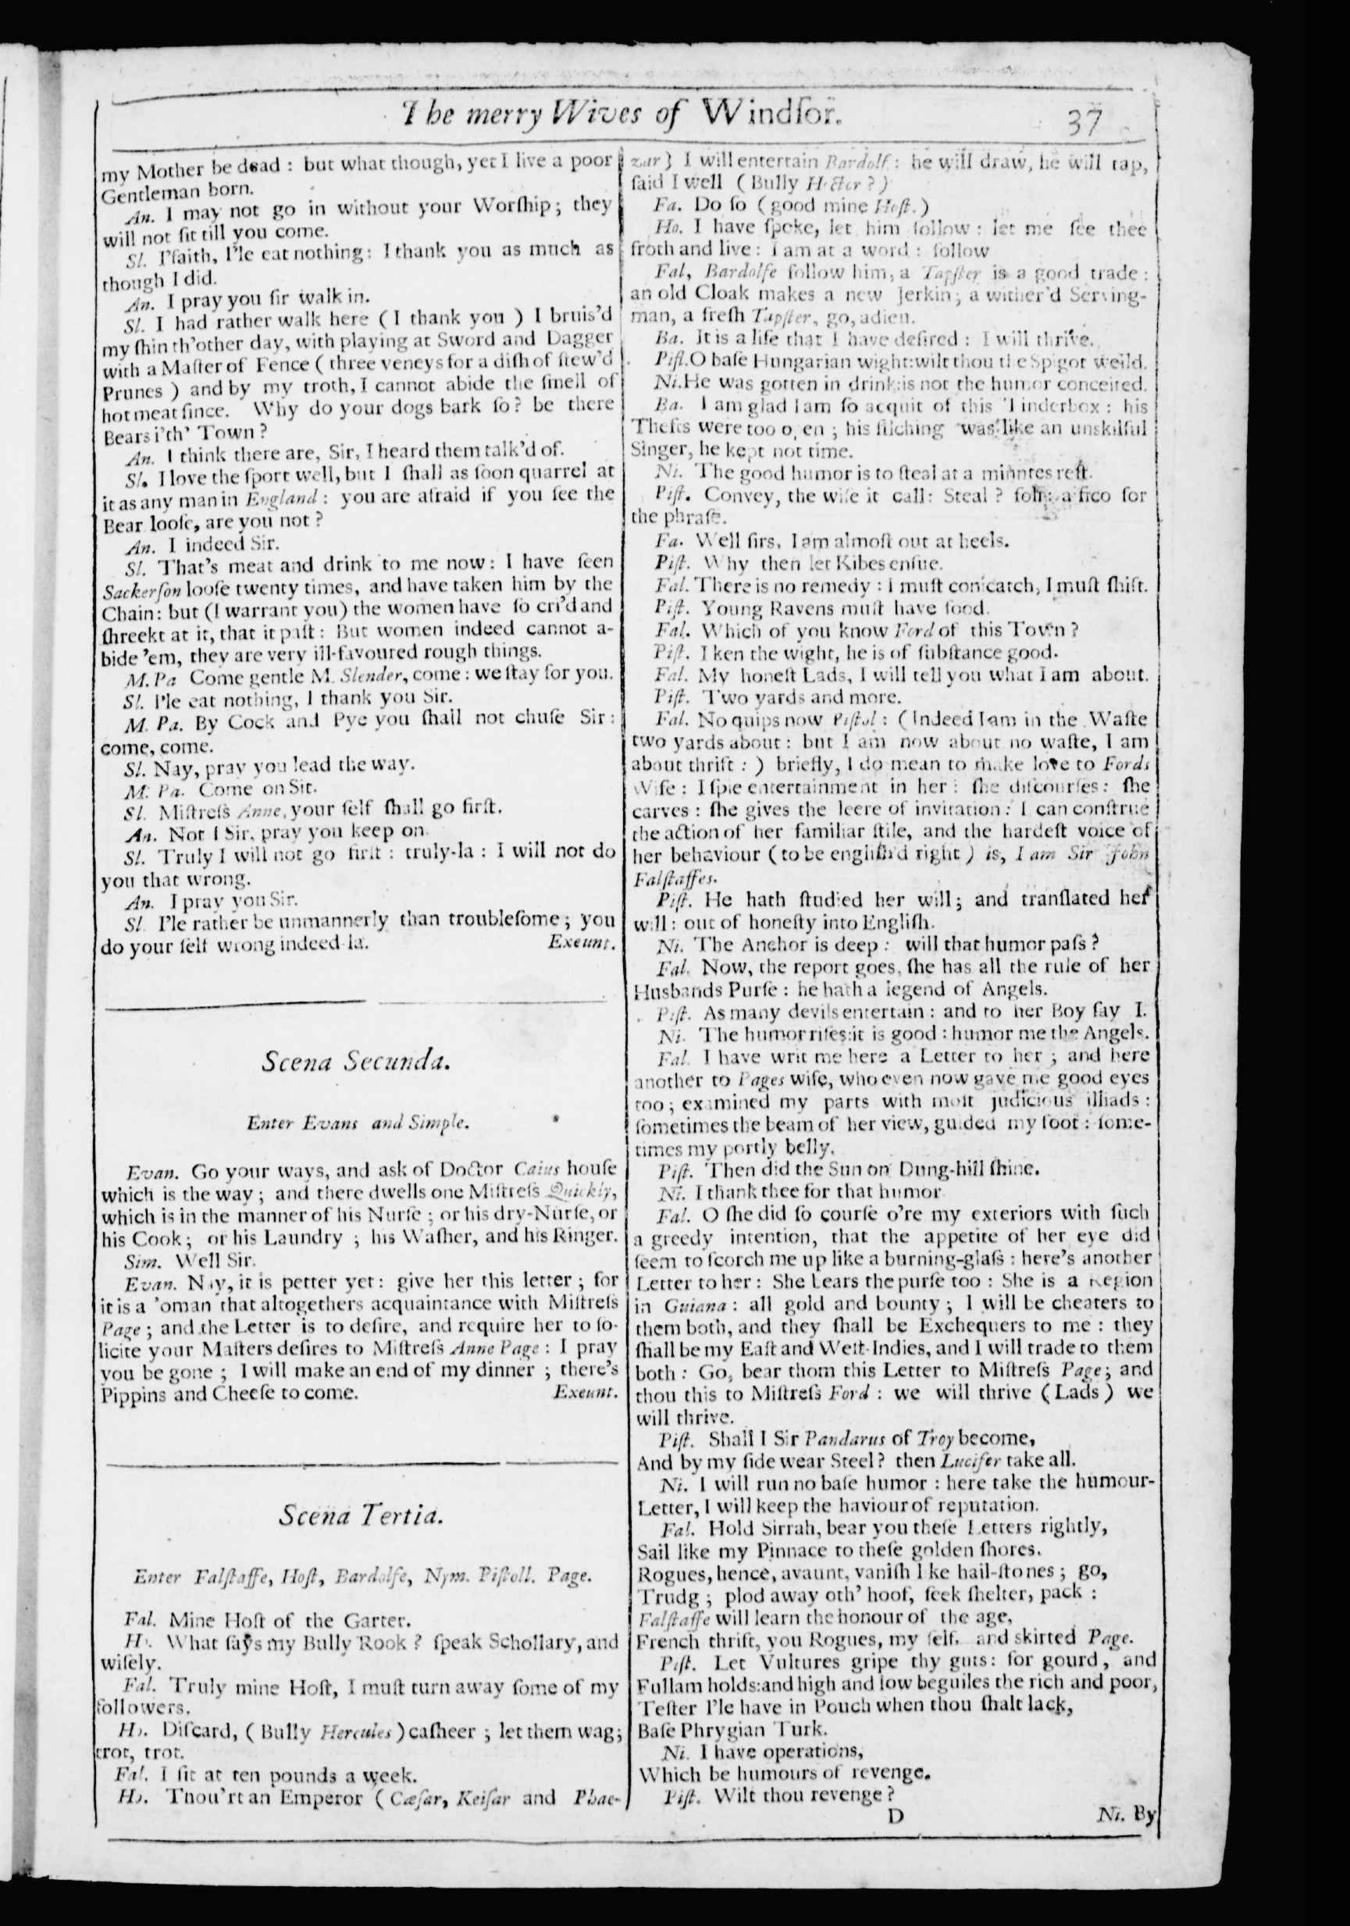 The merry Wives of Windſor.
37
my Mother be dead : but what though, yet I live a poor
Gentleman born.
An. I may not go in without your Worſhip ; they
will not ſit till you come.
Sl. I'faith, I'le eat nothing : I thank you as much as
though I did.
An. I pray you ſir walk in.
Sl. I had rather walk here ( I thank you ) I bruis'd
my ſhin th'other day, with playing at Sword and Dagger
with a Maſter of Fence ( three veneys for a diſh of ſtew'd
Prunes ) and by my troth, I cannot abide the ſmell of
hot meat ſince. Why do your dogs bark ſo ? be there
Bears i'th' Town ?
An. I think there are, Sir, I heard them talk'd of.
Sl. I love the ſport well, but I ſhall as ſoon quarrel at
it as any man in England : you are afraid if you ſee the
Bear looſe, are you not ?
An. I indeed Sir.
Sl. That's meat and drink to me now : I have ſeen
Sackerſon looſe twenty times, and have taken him by the
Chain : but (I warrant you) the women have ſo cri'd and
ſhreekt at it, that it paſt : But women indeed cannot a-
bide 'em, they are very ill-favoured rough things.
M. Pa Come gentle M. Slender, come : we ſtay for you.
Sl. I'le eat nothing, I thank you Sir.
M. Pa. By Cock and Pye you ſhall not chuſe Sir :
come, come.
Sl. Nay, pray you lead the way.
M. Pa. Come on Sir.
Sl. Miſtreſs Anne, your ſelf ſhall go firſt.
An. Not I Sir, pray you keep on.
Sl. Truly I will not go firſt : truly-la : I will not do
you that wrong.
An. I pray you Sir.
Sl. I'le rather be unmannerly than troubleſome ; you
do your ſelf wrong indeed-la. Exeunt.
Scena Secunda.
Enter Evans and Simple.
Evan. Go your ways, and ask of Doctor Caius houſe
which is the way ; and there dwells one Miſtreſs Quickly,
which is in the manner of his Nurſe ; or his dry-Nurſe, or
his Cook ; or his Laundry ; his Waſher, and his Ringer.
Sim. Well Sir.
Evan. Nay, it is petter yet : give her this letter ; for
it is a 'oman that altogethers acquaintance with Miſtreſs
Page ; and the Letter is to deſire, and require her to ſo-
licite your Maſters deſires to Miſtreſs Anne Page : I pray
you be gone ; I will make an end of my dinner ; there's
Pippins and Cheeſe to come. Exeunt.
Scena Tertia.
Enter Falſtaffe, Hoſt, Bardolfe, Nym. Piſtoll. Page.
Fal. Mine Hoſt of the Garter.
Ho. What ſays my Bully Rook ? ſpeak Schollary, and
wiſely.
Fal. Truly mine Hoſt, I muſt turn away ſome of my
followers.
Ho. Diſcard, ( Bully Hercules ) caſheer ; let them wag ;
trot, trot.
Fal. I ſit at ten pounds a week.
Ho. Thou'rt an Emperor ( Cæſar, Keiſar and Phae-
zar ) I will entertain Bardolf : he will draw, he will tap,
ſaid I well ( Bully Hector ? )
Fa. Do ſo ( good mine Hoſt. )
Ho. I have ſpoke, let him follow : let me ſee thee
froth and live : I am at a word : follow
Fal, Bardolfe follow him, a Tapſter is a good trade :
an old Cloak makes a new Jerkin ; a wither'd Serving-
man, a freſh Tapſter, go, adieu.
Ba. It is a life that I have deſired : I will thrive.
Piſt. O baſe Hungarian wight : wilt thou the Spigot weild.
Ni. He was gotten in drink : is not the humor conceited.
Ba. I am glad I am ſo acquit of this Tinderbox : his
Thefts were too open ; his filching was like an unskilful
Singer, he kept not time.
Ni. The good humor is to ſteal at a minutes reſt.
Piſt. Convey, the wiſe it call : Steal ? foh : a fico for
the phraſe.
Fa. Well ſirs, I am almoſt out at heels.
Piſt. Why then let Kibes enſue.
Fal. There is no remedy : I muſt conicatch, I muſt ſhift.
Piſt. Young Ravens muſt have food.
Fal. Which of you know Ford of this Town ?
Piſt. I ken the wight, he is of ſubſtance good.
Fal. My honeſt Lads, I will tell you what I am about.
Piſt. Two yards and more.
Fal. No quips now Piſtol : ( Indeed I am in the Waſte
two yards about : but I am now about no waſte, I am
about thrift : ) briefly, I do mean to make love to Fords
Wife : I ſpie entertainment in her : ſhe diſcourſes : ſhe
carves : ſhe gives the leere of invitation : I can conſtrue
the action of her familiar ſtile, and the hardeſt voice of
her behaviour ( to be engliſh'd right ) is, I am Sir John
Falſtaffes.
Piſt. He hath ſtudied her will ; and tranſlated her
will : out of honeſty into Engliſh.
Ni. The Anchor is deep : will that humor paſs ?
Fal. Now, the report goes, ſhe has all the rule of her
Husbands Purſe : he hath a legend of Angels.
Piſt. As many devils entertain : and to her Boy ſay I.
Ni. The humor riſes : it is good : humor me the Angels.
Fal. I have writ me here a Letter to her ; and here
another to Pages wife, who even now gave me good eyes
too ; examined my parts with moſt judicious illiads :
ſometimes the beam of her view, guided my foot : ſome-
times my portly belly.
Piſt. Then did the Sun on Dung-hill ſhine.
Ni. I thank thee for that humor.
Fal. O ſhe did ſo courſe o're my exteriors with ſuch
a greedy intention, that the appetite of her eye did
ſeem to ſcorch me up like a burning-glaſs : here's another
Letter to her : She bears the purſe too : She is a Region
in Guiana : all gold and bounty ; I will be cheaters to
them both, and they ſhall be Exchequers to me : they
ſhall be my Eaſt and Weſt-Indies, and I will trade to them
both : Go, bear thom this Letter to Miſtreſs Page ; and
thou this to Miſtreſs Ford : we will thrive ( Lads ) we
will thrive.
Piſt. Shall I Sir Pandarus of Troy become,
And by my ſide wear Steel ? then Lucifer take all.
Ni. I will run no baſe humor : here take the humour-
Letter, I will keep the haviour of reputation.
Fal. Hold Sirrah, bear you theſe Letters rightly,
Sail like my Pinnace to theſe golden ſhores.
Rogues, hence, avaunt, vaniſh like hail-ſtones ; go,
Trudg ; plod away oth' hoof, ſeek ſhelter, pack :
Falſtaffe will learn the honour of the age,
French thrift, you Rogues, my ſelf, and skirted Page.
Piſt. Let Vultures gripe thy guts : for gourd, and
Fullam holds : and high and low beguiles the rich and poor,
Teſter I'le have in Pouch when thou ſhalt lack,
Baſe Phrygian Turk.
Ni. I have operations,
Which be humours of revenge.
Piſt. Wilt thou revenge ?
D
Ni. By